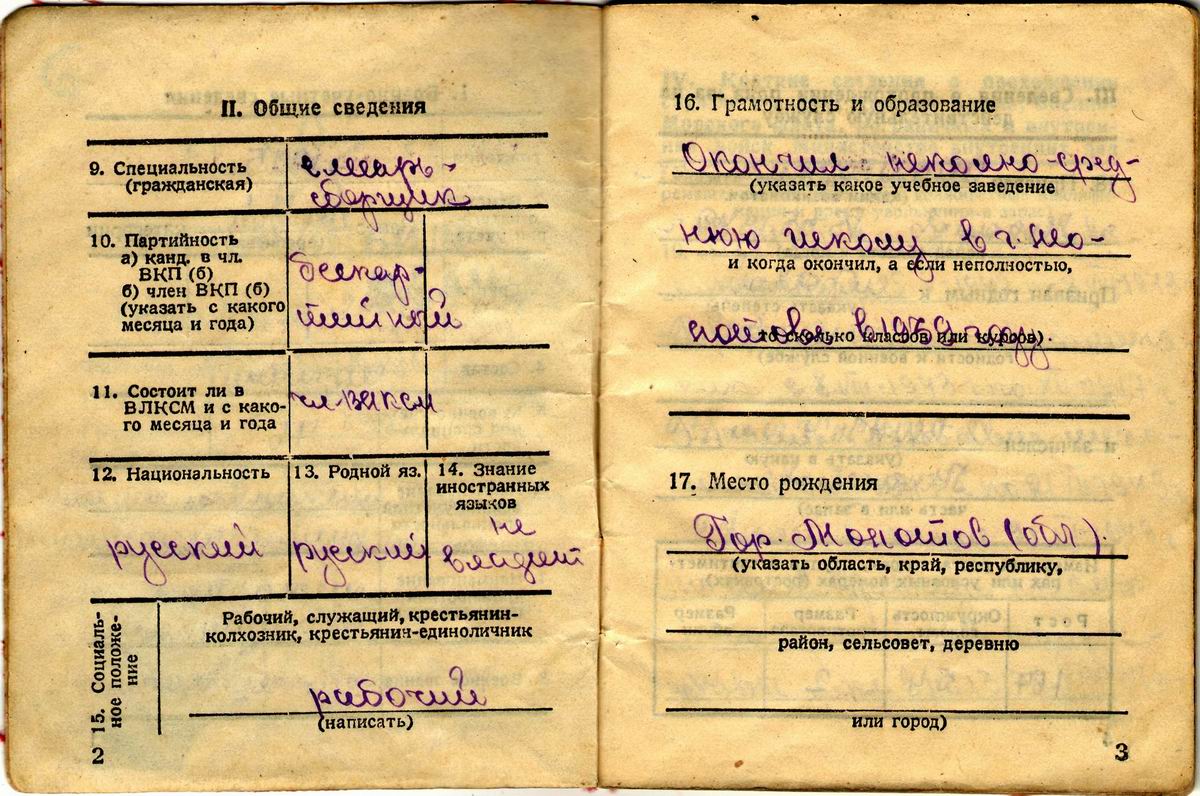 II. Общие сведения
9. Специальность
(гражданская)
слесарь-
сборщик
10. Партийность
а) канд. в чл.
ВКП (б)
б) член ВКП (б)
(указать с какого
месяца и года)
беспар-
тийный
11. Состоит ли в
ВЛКСМ и с како-
го месяца и года
чл. ВЛКСМ
12. Национальность
русский
13. Родной яз.
русский
14. Знание
иностранных
языков
не
владеет
15. Социаль-
ное положе-
ние
Рабочий, служащий, крестьянин-
колхозник, крестьянин-единоличник
рабочий
(написать)
2
16. Грамотность и образование
Окончил неполно-сред-
(указать какое учебное заведение
нюю школу в г. Мо-
и когда окончил, а если неполностью,
лотове в 1959 году
то сколько классов или курсов)
17. Место рождения
Гор. Молотов (обл.).
(указать область, край, республику,
район, сельсовет, деревню
или город)
3